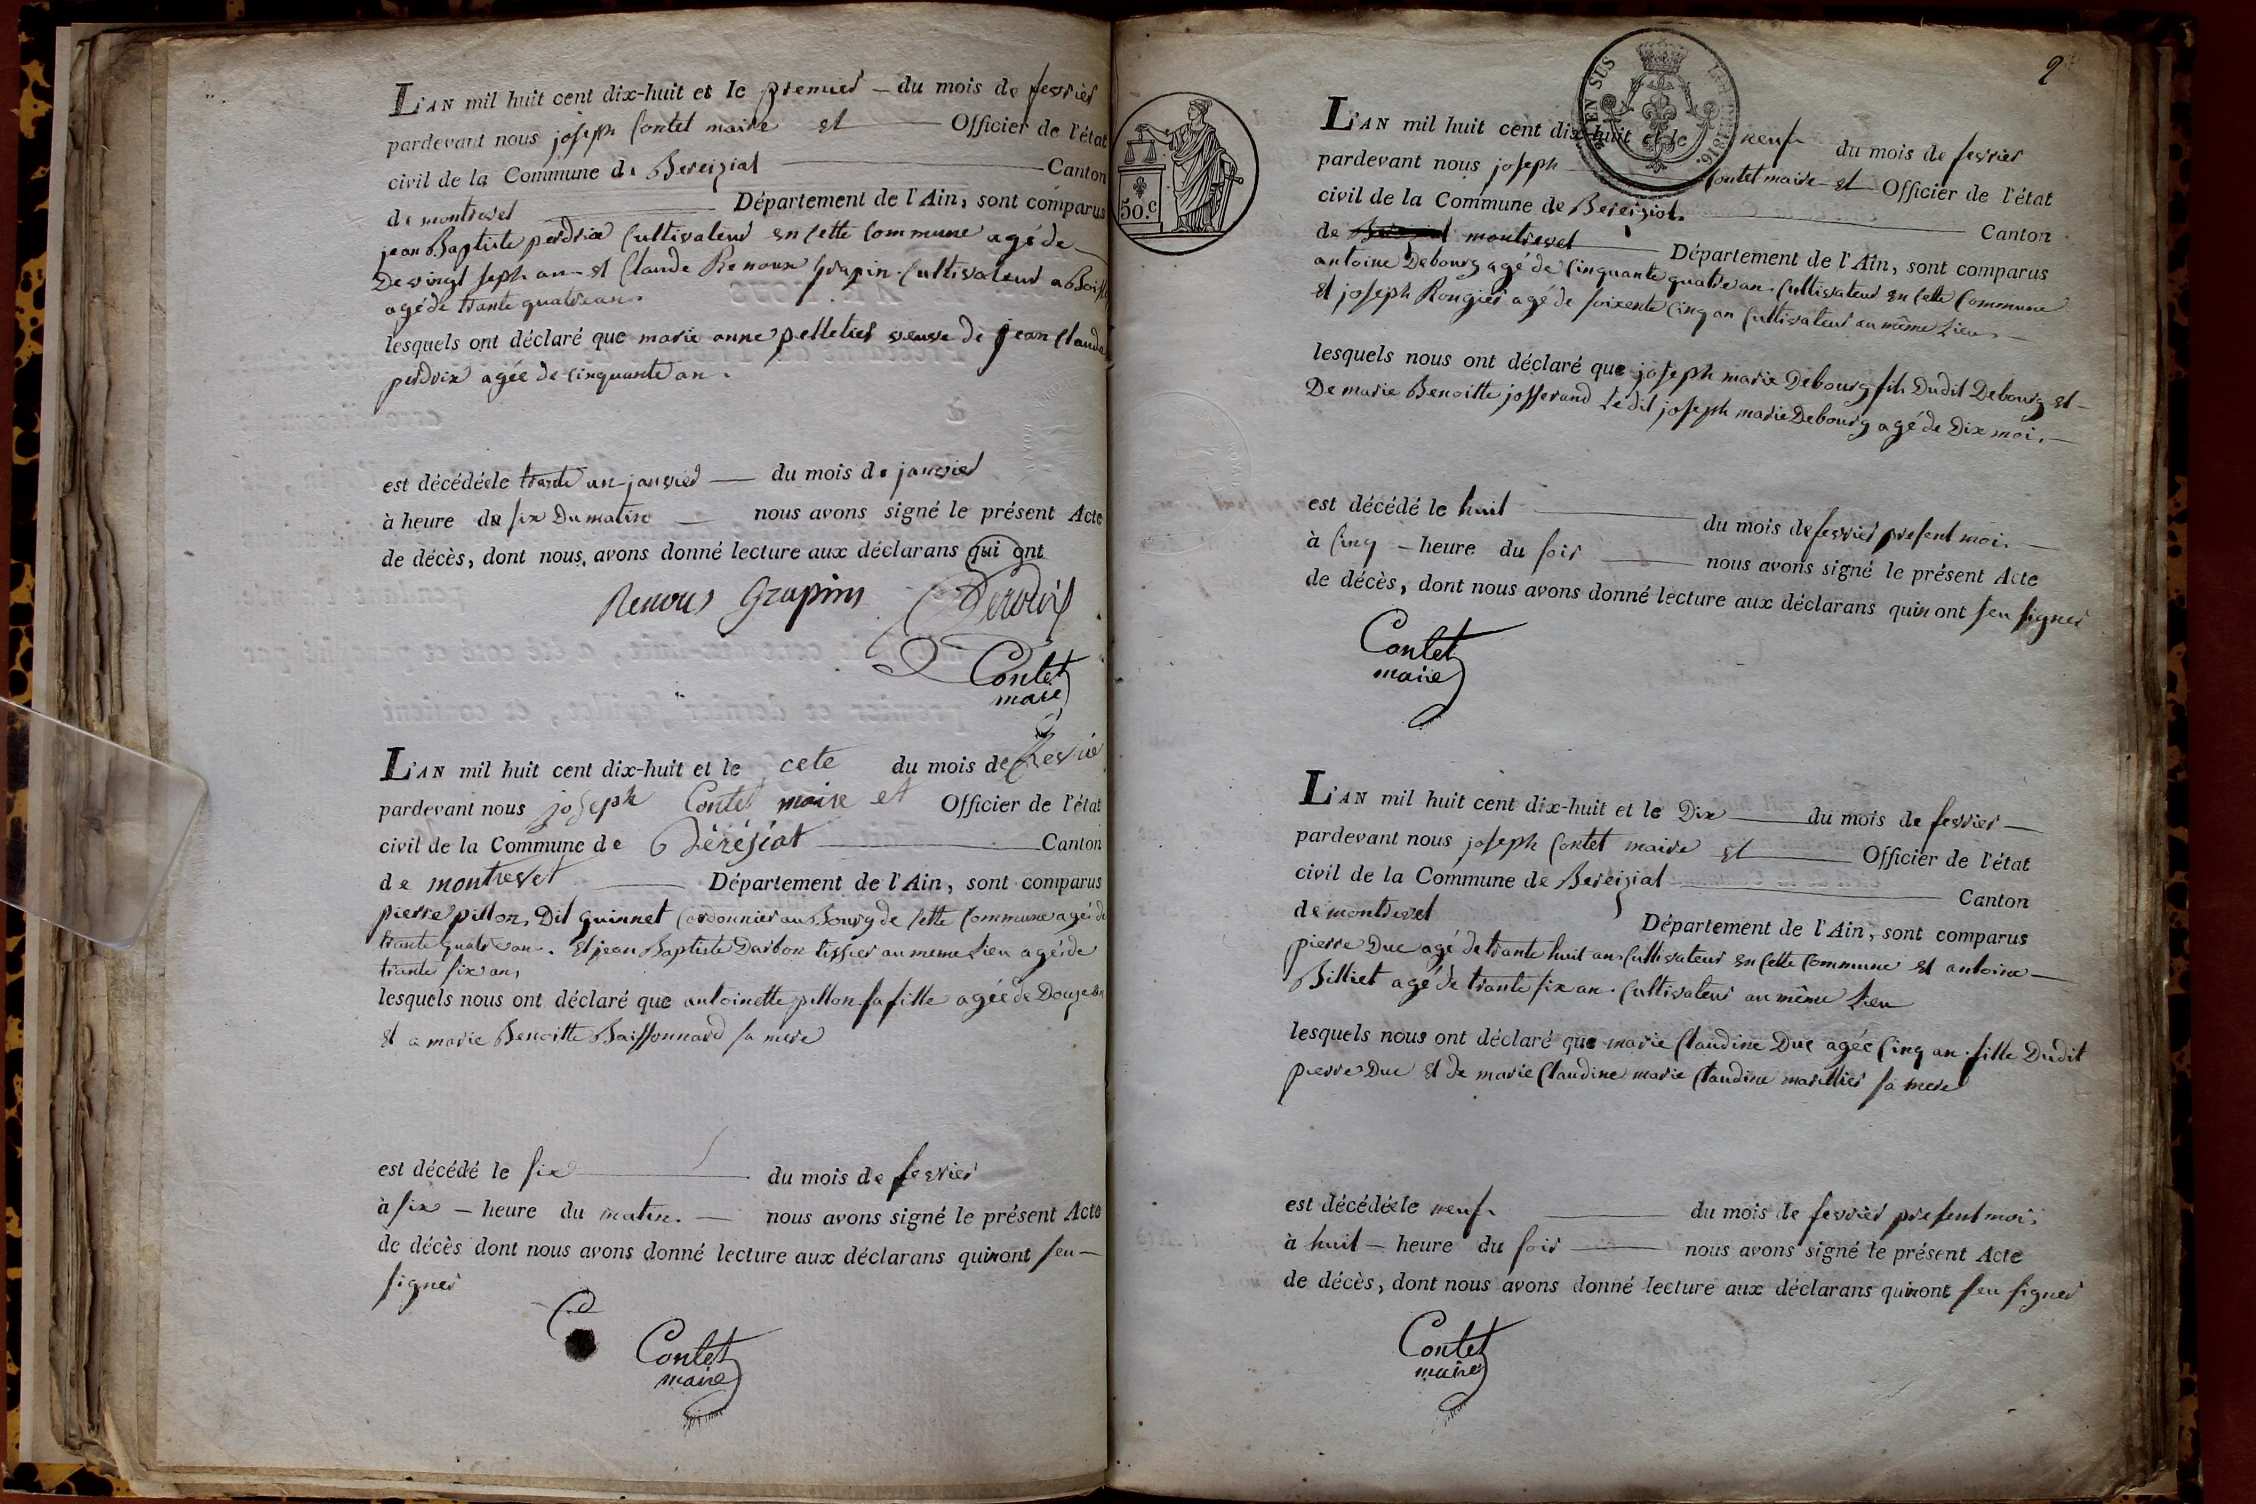 L'AN mil huit cent dix-huit et le premier du mois de fevrier
pardevant nous joseph Contet maire et Officier de l'état
civil de la Commune de Bereiziat Canton
de montrevel Département de l'Ain, sont comparus
jean Baptiste perdrix Cultivateur en cette Commune agé de
De vingt seph an et Claude Renoux Grapin Cultivateur a
agé de trante quatre an.
lesquels ont déclaré que marie anne pelletier veuve de jean Claude
perdrix agée de cinquante an.
est décédée le trante un janvier du mois de janvier
à heure du six Du matin nous avons signé le présent Acte
de décès, dont nous avons donné lecture aux déclarans qui ont
Renous Grapin
Contet
maire
L'AN mil huit cent dix-huit et le cete du mois de fevrie
pardevant nous joseph Contet maire et Officier de l'état
civil de la Commune de Béréziat Canton
de montrevel Département de l'Ain, sont comparus
pierre pillon, Dit guinnet Cordonnier au Bourg de cette Commune agé de
trante quatre an. Et jean Baptiste Darbon tissier au meme Lieu agé de
trante six an,
lesquels nous ont déclaré que antoinette pillon sa fille agée de Douze an
Et a marie Benoitte Boissonnard sa mere
est décédé le six du mois de fevrier
à six heure du matin. nous avons signé le présent Acte
de décès dont nous avons donné lecture aux déclarans quinont seu
signer
Contet
maire
2
EN SUS
1816.
50.c
L'AN mil huit cent dix-huit et le neuf du mois de fevrier
pardevant nous joseph Contet maire et Officier de l'état
civil de la Commune de Bereiziat. Canton
de montrevel Département de l'Ain, sont comparus
antoine Debourg agé de Cinquante quatre an. Cultivateur en cette Commune
Et joseph Rongier agé de soixente cinq an Cultivateur au même Lieu
lesquels nous ont déclaré que joseph marie Debourg fils Dudit Debourg et
De marie Benoitte josserand Ledit joseph marie Debourg agé de Dix moi.
est décédé le huit du mois de fevrier present moi.
à Cinq heure du soir nous avons signé le présent Acte
de décès, dont nous avons donné lecture aux déclarans quin ont seu signer
Contet
maire
L'AN mil huit cent dix-huit et le Dix du mois de fevrier
pardevant nous joseph Contet maire et Officier de l'état
civil de la Commune de Bereiziat Canton
de montrevel Département de l'Ain, sont comparus
pierre Duc agé de trante huit an Cultivateur en cette Commune et antoine
Billiet agé de trante six an. Cultivateur au même Lieu
lesquels nous ont déclaré que marie Claudine Duc agée Cinq an. fille Dudit
pierre Duc Et de marie Claudine marie Claudine marillier sa mere
est décédée le neuf du mois de fevrier present moi.
à huit heure du soir nous avons signé le présent Acte
de décès, dont nous avons donné lecture aux déclarans quinont seu signer
Contet
maire